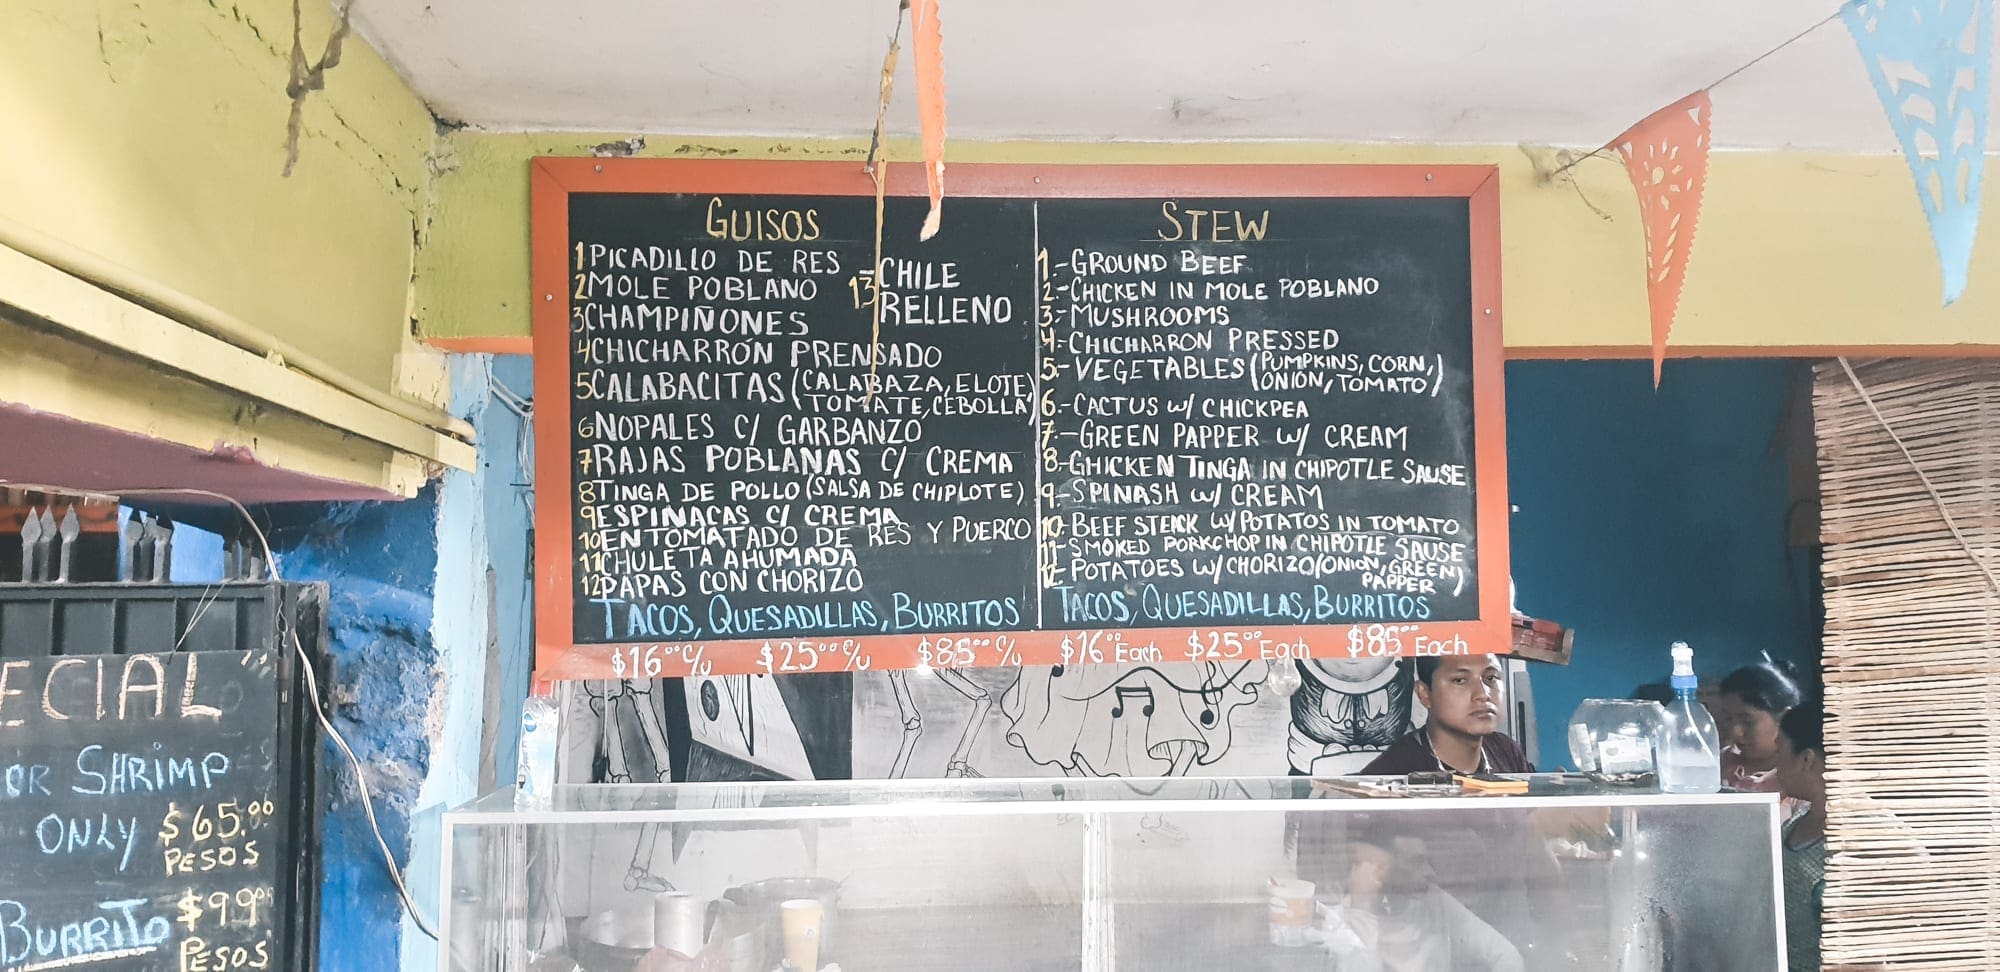 GUISOS
1 PICADILLO DE RES
2 MOLE POBLANO
3 CHAMPIÑONES
4 CHICHARRÓN PRENSADO
5 CALABACITAS (CALABAZA, ELOTE,
TOMATE, CEBOLLA)
6 NOPALES C/ GARBANZO
7 RAJAS POBLANAS C/ CREMA
8 TINGA DE POLLO (SALSA DE CHIPLOTE)
9 ESPINACAS C/ CREMA
10 ENTOMATADO DE RES Y PUERCO
11 CHULETA AHUMADA
12 PAPAS CON CHORIZO
13- CHILE
RELLENO
TACOS, QUESADILLAS, BURRITOS
$16°° c/u $25°° c/u $85°° c/u
STEW
1.- GROUND BEEF
2.- CHICKEN IN MOLE POBLANO
3.- MUSHROOMS
4.- CHICHARRON PRESSED
5.- VEGETABLES (PUMPKINS, CORN,
ONION, TOMATO)
6.- CACTUS w/ CHICKPEA
7.- GREEN PAPPER w/ CREAM
8- CHICKEN TINGA IN CHIPOTLE SAUSE
9- SPINASH w/ CREAM
10.- BEEF STEACK w/ POTATOS IN TOMATO
11- SMOKED PORKCHOP IN CHIPOTLE SAUSE
12- POTATOES w/ CHORIZO (ONION, GREEN
PAPPER)
TACOS, QUESADILLAS, BURRITOS
$16°° Each $25°° Each $85°° Each
ECIAL
OR SHRIMP
ONLY $65.00
PESOS
BURRITO $99°°
PESOS